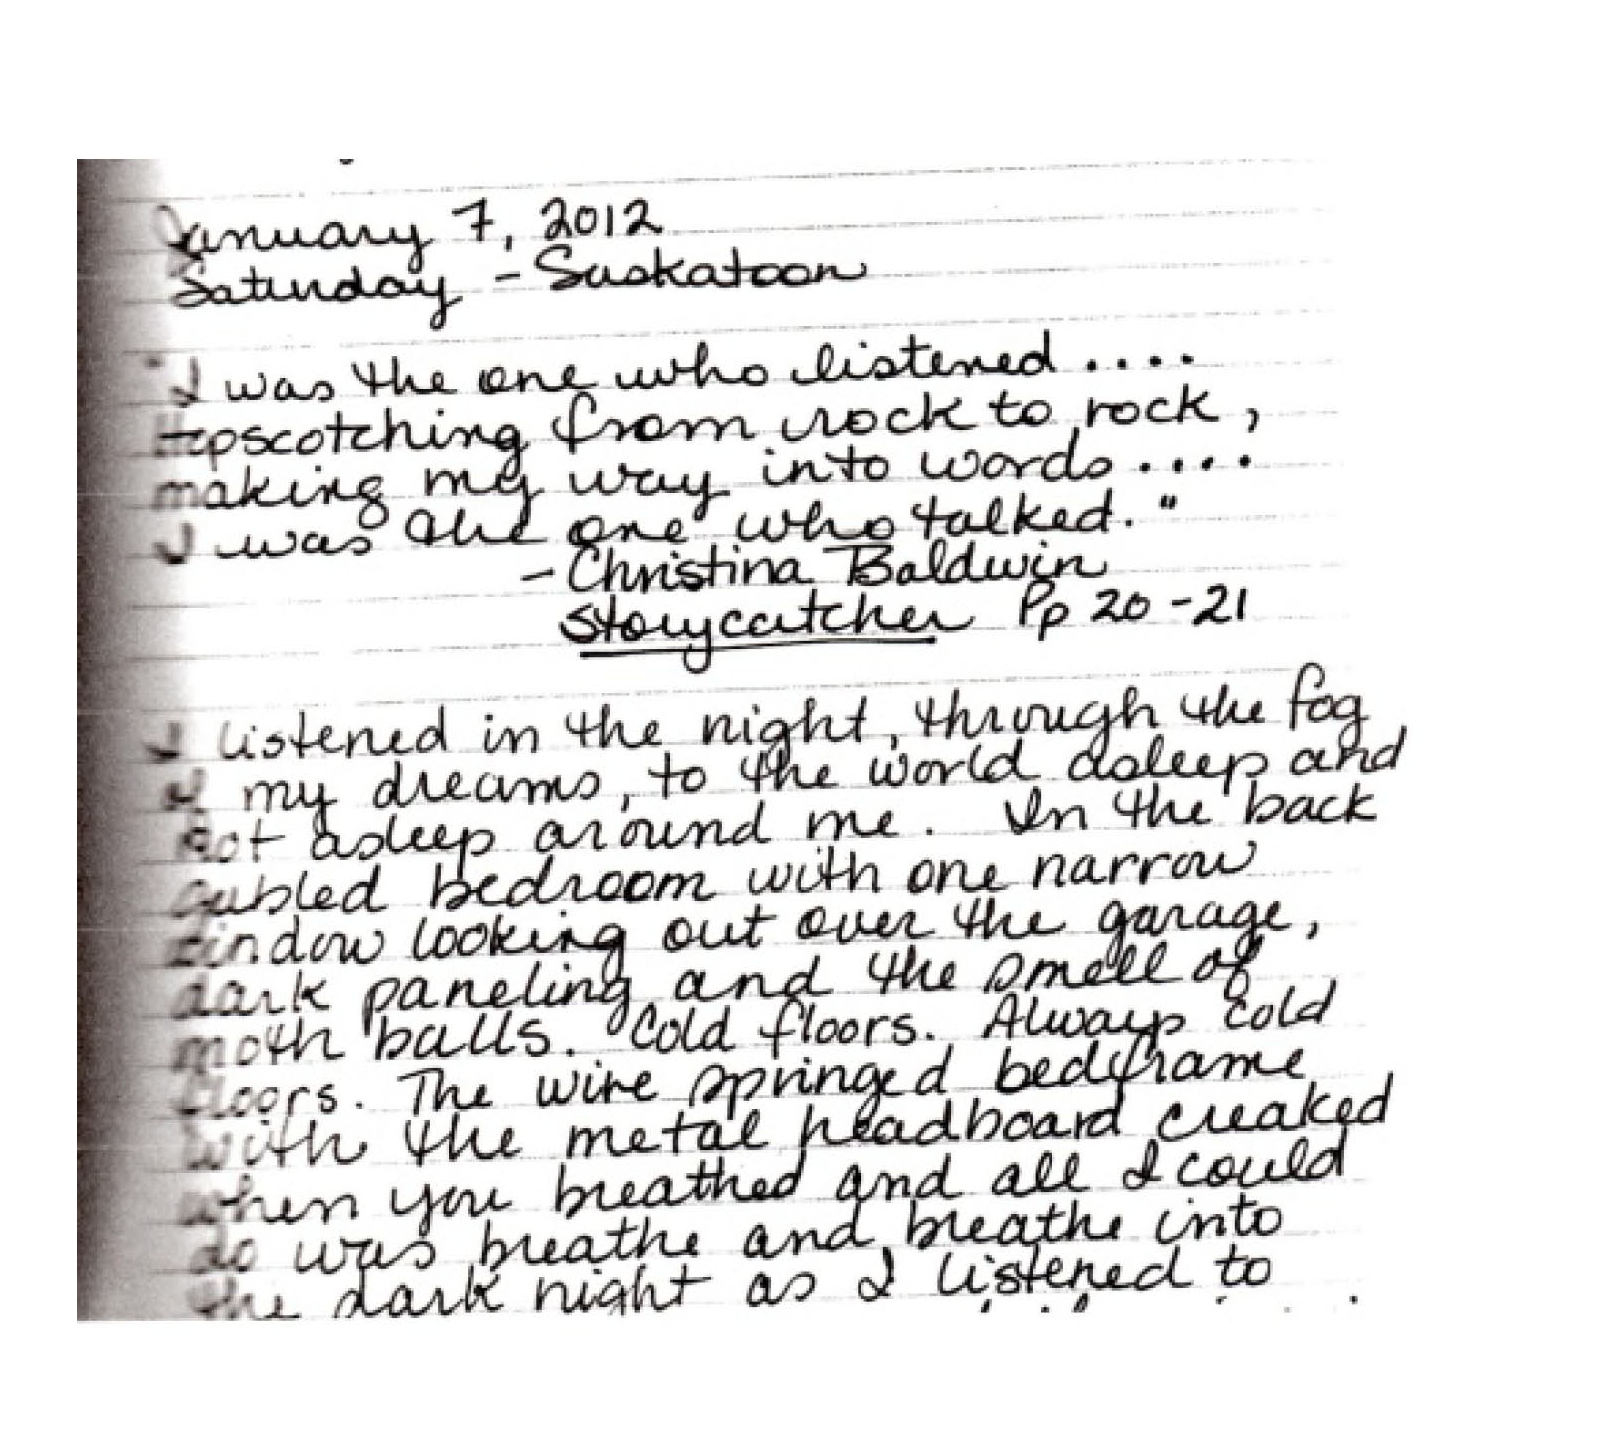 January 7, 2012
Saturday - Saskatoon
"I was the one who listened ....
Hopscotching from rock to rock,
making my way into words ....
I was the one who talked."
- Christina Baldwin
Storycatcher Pp 20-21
I listened in the night, through the fog
of my dreams, to the world asleep and
not asleep around me. In the back
gabled bedroom with one narrow
window looking out over the garage,
dark paneling and the smell of
moth balls. Cold floors. Always cold
floors. The wire springed bedframe
with the metal headboard creaked
when you breathed and all I could
do was breathe and breathe into
the dark night as I listened to